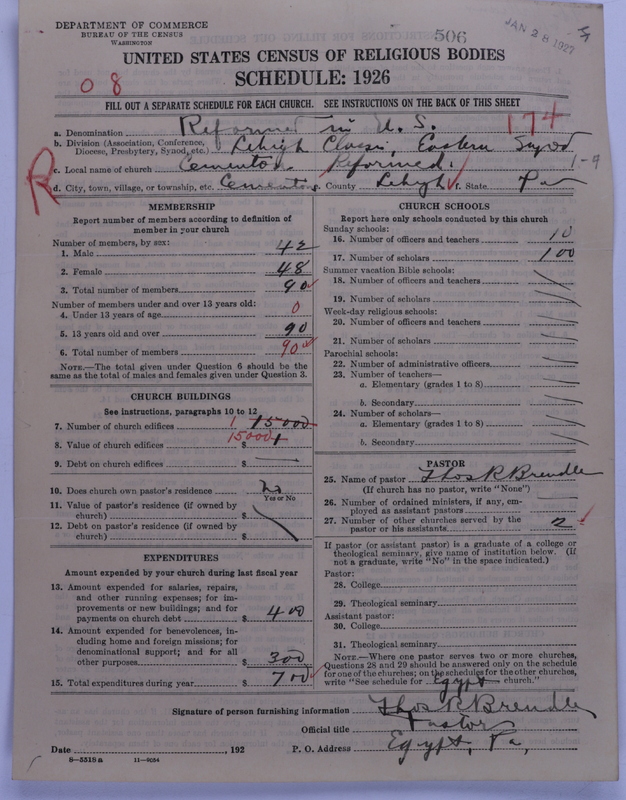 DEPARTMENT OF COMMERCE
BUREAU OF THE CENSUS
WASHINGTON
506
JAN 28 1927
UNITED STATES CENSUS OF RELIGIOUS BODIES
SCHEDULE: 1926
0 8
FILL OUT A SEPARATE SCHEDULE FOR EACH CHURCH. SEE INSTRUCTIONS ON THE BACK OF THIS SHEET
174
a. Denomination Reformed in U. S.
b. Division (Association, Conference, Diocese, Presbytery, Synod, etc.) Lehigh Classis, Eastern Synod
R
1-9
c. Local name of church Cementon Reformed
d. City, town, village, or township, etc. Cementon e. County Lehigh f. State Pa
MEMBERSHIP
Report number of members according to definition of
member in your church
Number of members, by sex:
1. Male 42
2. Female 48
3. Total number of members 90
Number of members under and over 13 years old:
4. Under 13 years of age 0
5. 13 years old and over 90
6. Total number of members 90
NOTE.—The total given under Question 6 should be
same as the total of males and females given under Question 3.
CHURCH BUILDINGS
See instructions, paragraphs 10 to 12
7. Number of church edifices 1 15000
8. Value of church edifices $ 15000 1
9. Debt on church edifices $
10. Does church own pastor's residence no
Yes or No
11. Value of pastor's residence (if owned by
church) $
12. Debt on pastor's residence (if owned by
church) $
EXPENDITURES
Amount expended by your church during last fiscal year
13. Amount expended for salaries, repairs,
and other running expenses; for im-
provements or new buildings; and for
payments on church debt $ 400
14. Amount expended for benevolences, in-
cluding home and foreign missions; for
denominational support; and for all
other purposes $ 300
15. Total expenditures during year $ 700
CHURCH SCHOOLS
Report here only schools conducted by this church
Sunday schools:
16. Number of officers and teachers 10
17. Number of scholars 100
Summer vacation Bible schools:
18. Number of officers and teachers
19. Number of scholars
Week-day religious schools:
20. Number of officers and teachers
21. Number of scholars
Parochial schools:
22. Number of administrative officers
23. Number of teachers—
a. Elementary (grades 1 to 8)
b. Secondary
24. Number of scholars—
a. Elementary (grades 1 to 8)
b. Secondary
PASTOR
25. Name of pastor Thos R Brendle
(If church has no pastor, write "None")
26. Number of ordained ministers, if any, em-
ployed as assistant pastors
27. Number of other churches served by the
pastor or his assistants 2
If pastor (or assistant pastor) is a graduate of a college or
theological seminary, give name of institution below. (If
not a graduate, write "No" in the space indicated.)
Pastor:
28. College
29. Theological seminary
Assistant pastor:
30. College
31. Theological seminary
NOTE.—Where one pastor serves two or more churches,
Questions 28 and 29 should be answered only on the schedule
for one of the churches; on the schedules for the other churches,
write "See schedule for Egypt church."
Signature of person furnishing information Thos R Brendle
Official title Pastor
Date , 192 P. O. Address Egypt, Pa,
8—5518 a 11—9054